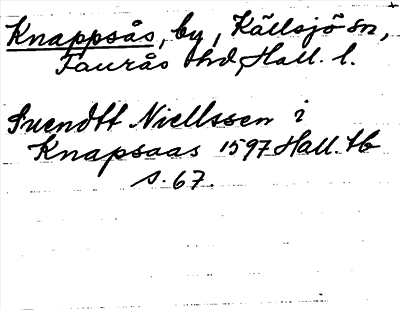 Knappsås, by, Källsjö sn,
Faurås hd, Hall. l.
Suendtt Niellssen i
Knapsaas 1597 Hall. tb
s. 67.